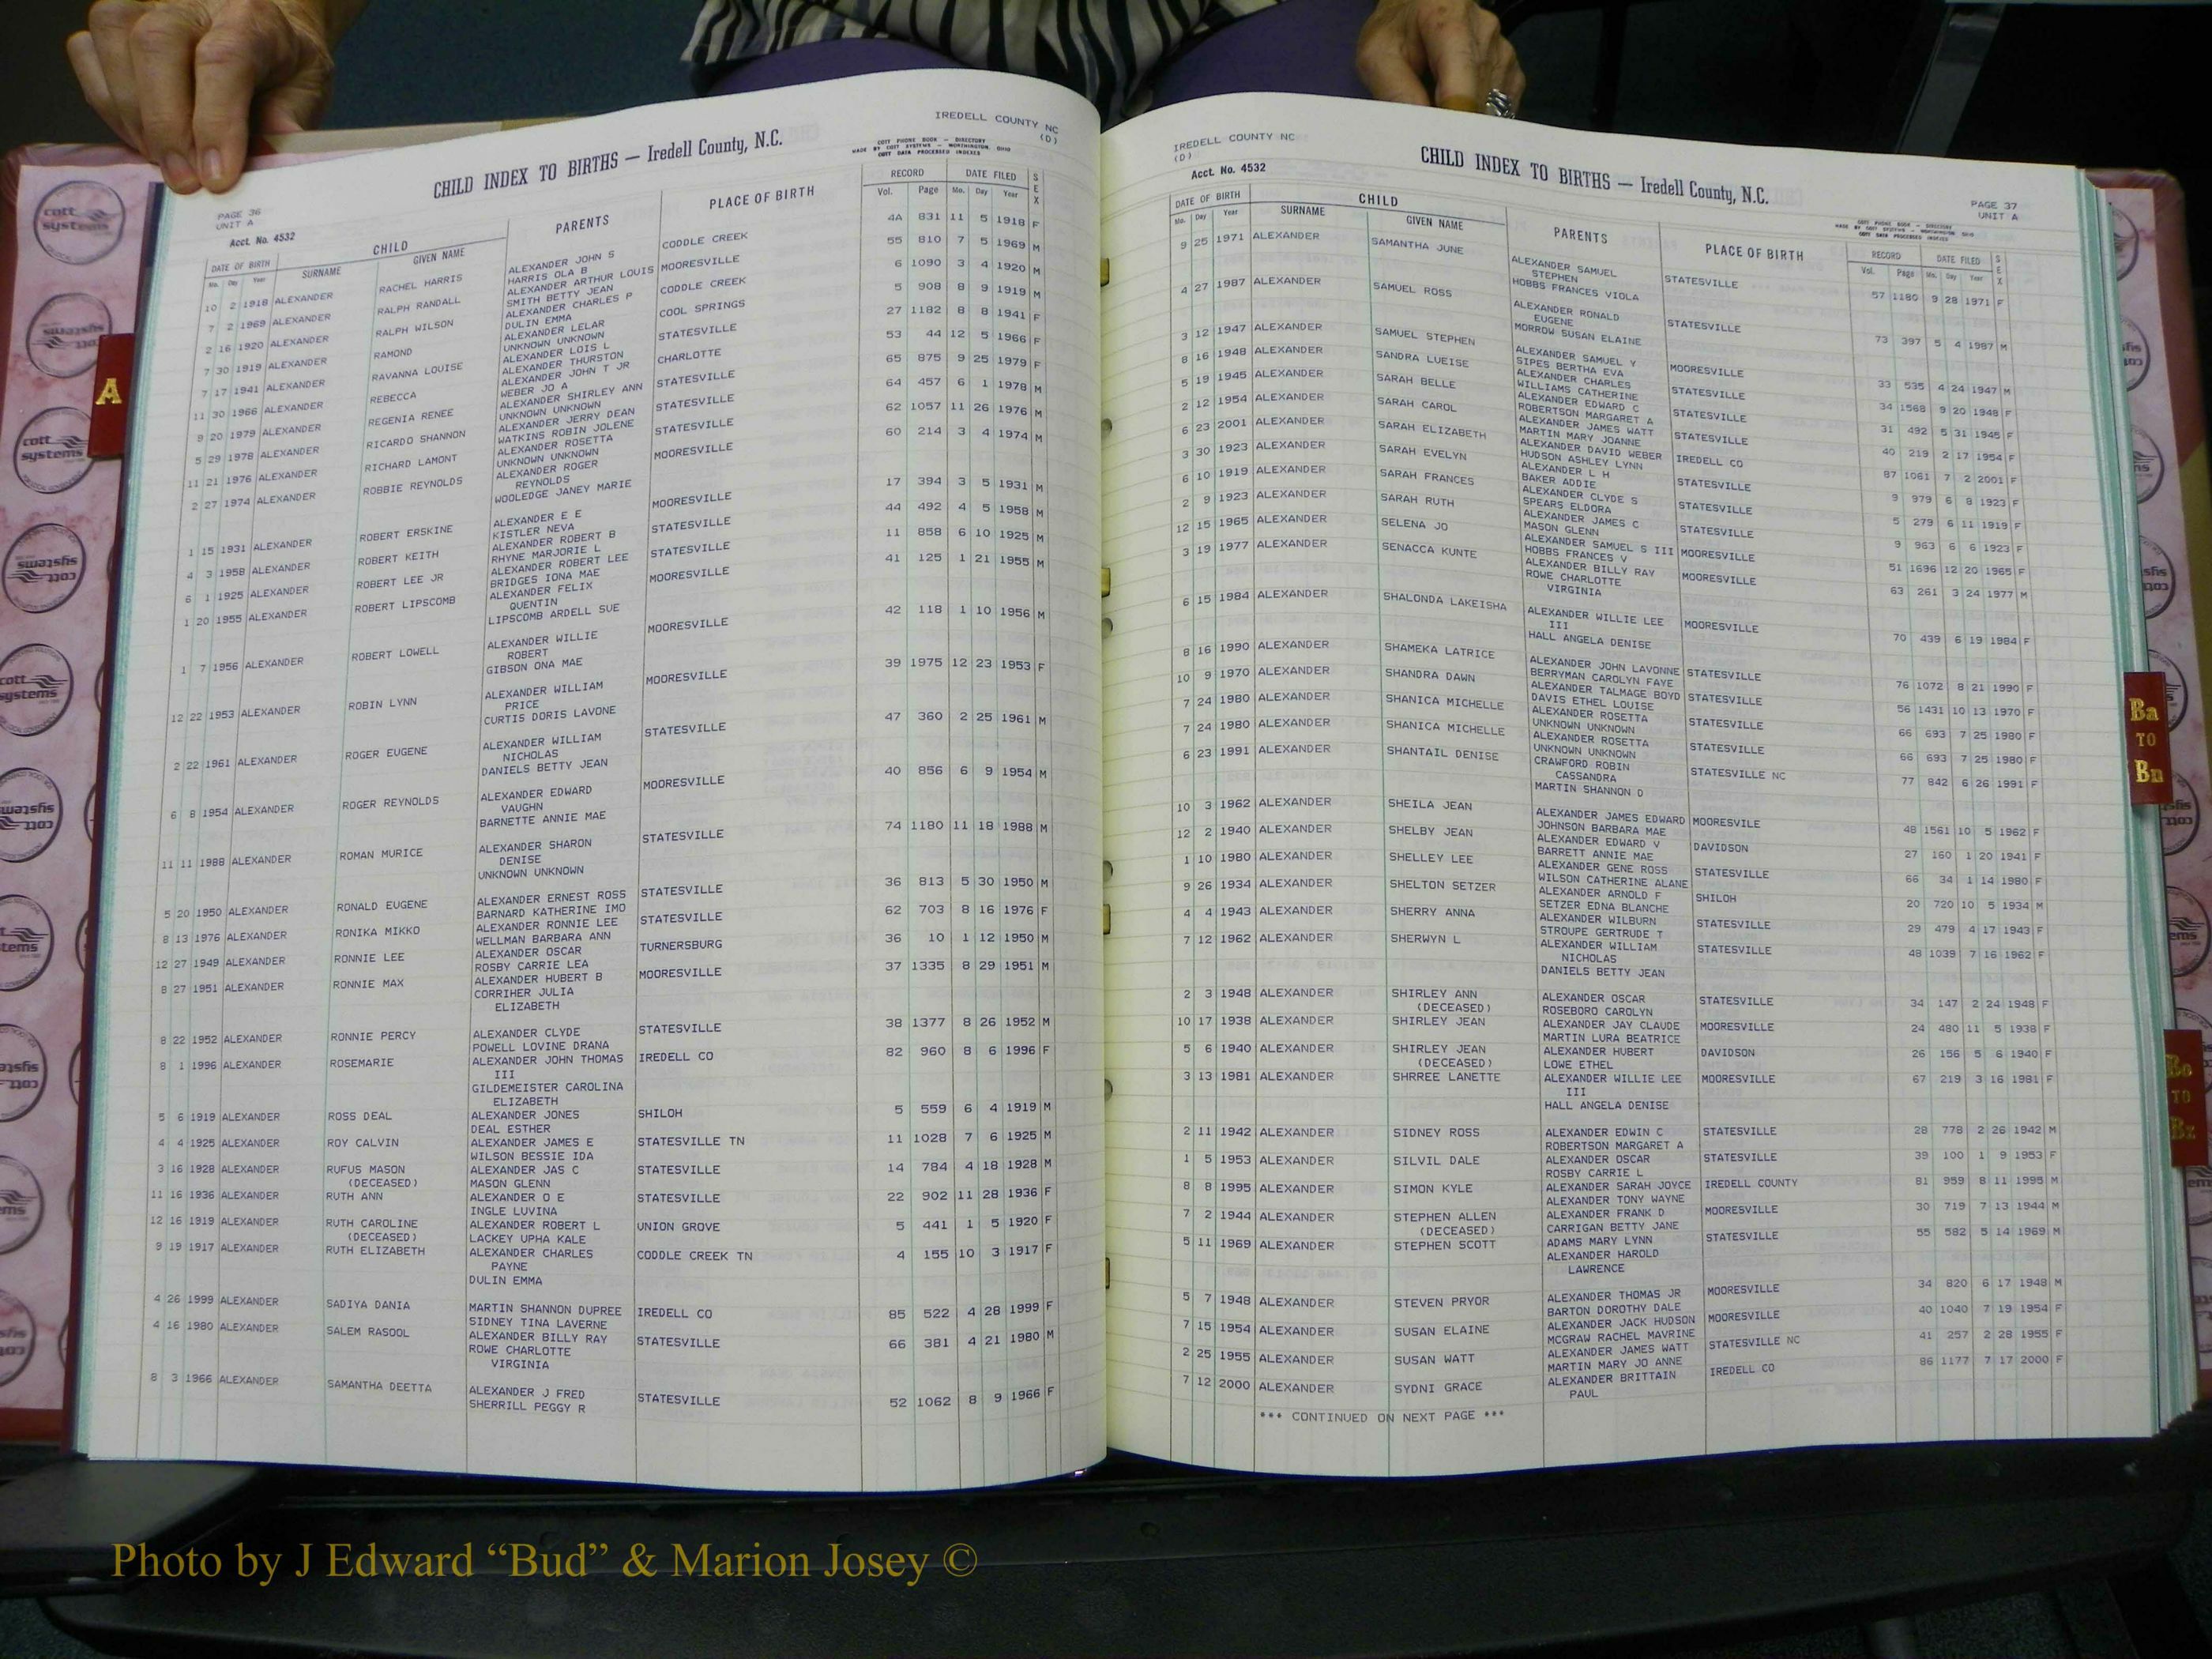 IREDELL COUNTY NC
(D)
CHILD INDEX TO BIRTHS — Iredell County, N.C.
COTT PHONE BOOK — DIRECTORY
MADE BY COTT SYSTEMS — WORTHINGTON, OHIO
COTT DATA PROCESSED INDEXES
PAGE 36
UNIT A
Acct. No. 4532
DATE OF BIRTH CHILD PARENTS PLACE OF BIRTH RECORD DATE FILED SEX
Mo. Day Year SURNAME GIVEN NAME Vol. Page Mo. Day Year
10 2 1918 ALEXANDER RACHEL HARRIS ALEXANDER JOHN S CODDLE CREEK 4A 831 11 5 1918 F
HARRIS OLA B
7 2 1969 ALEXANDER RALPH RANDALL ALEXANDER ARTHUR LOUIS MOORESVILLE 55 810 7 5 1969 M
SMITH BETTY JEAN
2 16 1920 ALEXANDER RALPH WILSON ALEXANDER CHARLES P CODDLE CREEK 6 1090 3 4 1920 M
DULIN EMMA
7 30 1919 ALEXANDER RAMOND ALEXANDER LELAR COOL SPRINGS 5 908 8 9 1919 M
UNKNOWN UNKNOWN
7 17 1941 ALEXANDER RAVANNA LOUISE ALEXANDER LOIS L STATESVILLE 27 1182 8 8 1941 F
ALEXANDER THURSTON
11 30 1966 ALEXANDER REBECCA ALEXANDER JOHN T JR CHARLOTTE 53 44 12 5 1966 F
WEBER JO A
9 20 1979 ALEXANDER REGENIA RENEE ALEXANDER SHIRLEY ANN STATESVILLE 65 875 9 25 1979 F
UNKNOWN UNKNOWN
5 29 1978 ALEXANDER RICARDO SHANNON ALEXANDER JERRY DEAN STATESVILLE 64 457 6 1 1978 M
WATKINS ROBIN JOLENE
11 21 1976 ALEXANDER RICHARD LAMONT ALEXANDER ROSETTA STATESVILLE 62 1057 11 26 1976 M
UNKNOWN UNKNOWN
2 27 1974 ALEXANDER ROBBIE REYNOLDS ALEXANDER ROGER MOORESVILLE 60 214 3 4 1974 M
REYNOLDS
WOOLEDGE JANEY MARIE
1 15 1931 ALEXANDER ROBERT ERSKINE ALEXANDER E E MOORESVILLE 17 394 3 5 1931 M
KISTLER NEVA
4 3 1958 ALEXANDER ROBERT KEITH ALEXANDER ROBERT B STATESVILLE 44 492 4 5 1958 M
RHYNE MARJORIE L
6 1 1925 ALEXANDER ROBERT LEE JR ALEXANDER ROBERT LEE STATESVILLE 11 858 6 10 1925 M
BRIDGES IONA MAE
1 20 1955 ALEXANDER ROBERT LIPSCOMB ALEXANDER FELIX MOORESVILLE 41 125 1 21 1955 M
QUENTIN
LIPSCOMB ARDELL SUE
1 7 1956 ALEXANDER ROBERT LOWELL ALEXANDER WILLIE MOORESVILLE 42 118 1 10 1956 M
ROBERT
GIBSON ONA MAE
12 22 1953 ALEXANDER ROBIN LYNN ALEXANDER WILLIAM MOORESVILLE 39 1975 12 23 1953 F
PRICE
CURTIS DORIS LAVONE
2 22 1961 ALEXANDER ROGER EUGENE ALEXANDER WILLIAM STATESVILLE 47 360 2 25 1961 M
NICHOLAS
DANIELS BETTY JEAN
6 8 1954 ALEXANDER ROGER REYNOLDS ALEXANDER EDWARD MOORESVILLE 40 856 6 9 1954 M
VAUGHN
BARNETTE ANNIE MAE
11 11 1988 ALEXANDER ROMAN MURICE ALEXANDER SHARON STATESVILLE 74 1180 11 18 1988 M
DENISE
UNKNOWN UNKNOWN
5 20 1950 ALEXANDER RONALD EUGENE ALEXANDER ERNEST ROSS STATESVILLE 36 813 5 30 1950 M
BARNARD KATHERINE IMO
8 13 1976 ALEXANDER RONIKA MIKKO ALEXANDER RONNIE LEE STATESVILLE 62 703 8 16 1976 F
WELLMAN BARBARA ANN
12 27 1949 ALEXANDER RONNIE LEE ALEXANDER OSCAR TURNERSBURG 36 10 1 12 1950 M
ROSBY CARRIE LEA
8 27 1951 ALEXANDER RONNIE MAX ALEXANDER HUBERT B MOORESVILLE 37 1335 8 29 1951 M
CORRIHER JULIA
ELIZABETH
8 22 1952 ALEXANDER RONNIE PERCY ALEXANDER CLYDE STATESVILLE 38 1377 8 26 1952 M
POWELL LOVINE DRANA
8 1 1996 ALEXANDER ROSEMARIE ALEXANDER JOHN THOMAS IREDELL CO 82 960 8 6 1996 F
III
GILDEMEISTER CAROLINA
ELIZABETH
5 6 1919 ALEXANDER ROSS DEAL ALEXANDER JONES SHILOH 5 559 6 4 1919 M
DEAL ESTHER
4 4 1925 ALEXANDER ROY CALVIN ALEXANDER JAMES E STATESVILLE TN 11 1028 7 6 1925 M
WILSON BESSIE IDA
3 16 1928 ALEXANDER RUFUS MASON ALEXANDER JAS C STATESVILLE 14 784 4 18 1928 M
(DECEASED) MASON GLENN
11 16 1936 ALEXANDER RUTH ANN ALEXANDER O E STATESVILLE 22 902 11 28 1936 F
INGLE LUVINA
12 16 1919 ALEXANDER RUTH CAROLINE ALEXANDER ROBERT L UNION GROVE 5 441 1 5 1920 F
(DECEASED) LACKEY UPHA KALE
9 19 1917 ALEXANDER RUTH ELIZABETH ALEXANDER CHARLES CODDLE CREEK TN 4 155 10 3 1917 F
PAYNE
DULIN EMMA
4 26 1999 ALEXANDER SADIYA DANIA MARTIN SHANNON DUPREE IREDELL CO 85 522 4 28 1999 F
SIDNEY TINA LAVERNE
4 16 1980 ALEXANDER SALEM RASOOL ALEXANDER BILLY RAY STATESVILLE 66 381 4 21 1980 M
ROWE CHARLOTTE
VIRGINIA
8 3 1966 ALEXANDER SAMANTHA DEETTA ALEXANDER J FRED STATESVILLE 52 1062 8 9 1966 F
SHERRILL PEGGY R
IREDELL COUNTY NC
(D)
Acct. No. 4532
CHILD INDEX TO BIRTHS — Iredell County, N.C.
PAGE 37
UNIT A
COTT PHONE BOOK — DIRECTORY
MADE BY COTT SYSTEMS — WORTHINGTON OHIO
COTT DATA PROCESSED INDEXES
DATE OF BIRTH CHILD PARENTS PLACE OF BIRTH RECORD DATE FILED SEX
Mo. Day Year SURNAME GIVEN NAME Vol. Page Mo. Day Year
9 25 1971 ALEXANDER SAMANTHA JUNE ALEXANDER SAMUEL STATESVILLE 57 1180 9 28 1971 F
STEPHEN
HOBBS FRANCES VIOLA
4 27 1987 ALEXANDER SAMUEL ROSS ALEXANDER RONALD STATESVILLE 73 397 5 4 1987 M
EUGENE
MORROW SUSAN ELAINE
3 12 1947 ALEXANDER SAMUEL STEPHEN ALEXANDER SAMUEL Y MOORESVILLE 33 535 4 24 1947 M
SIPES BERTHA EVA
8 16 1948 ALEXANDER SANDRA LUEISE ALEXANDER CHARLES STATESVILLE 34 1568 9 20 1948 F
WILLIAMS CATHERINE
5 19 1945 ALEXANDER SARAH BELLE ALEXANDER EDWARD C STATESVILLE 31 492 5 31 1945 F
ROBERTSON MARGARET A
2 12 1954 ALEXANDER SARAH CAROL ALEXANDER JAMES WATT STATESVILLE 40 219 2 17 1954 F
MARTIN MARY JOANNE
6 23 2001 ALEXANDER SARAH ELIZABETH ALEXANDER DAVID WEBER IREDELL CO 87 1061 7 2 2001 F
HUDSON ASHLEY LYNN
3 30 1923 ALEXANDER SARAH EVELYN ALEXANDER L H STATESVILLE 9 979 6 8 1923 F
BAKER ADDIE
6 10 1919 ALEXANDER SARAH FRANCES ALEXANDER CLYDE S STATESVILLE 5 279 6 11 1919 F
SPEARS ELDORA
2 9 1923 ALEXANDER SARAH RUTH ALEXANDER JAMES C STATESVILLE 9 963 6 6 1923 F
MASON GLENN
12 15 1965 ALEXANDER SELENA JO ALEXANDER SAMUEL S III MOORESVILLE 51 1696 12 20 1965 F
HOBBS FRANCES V
3 19 1977 ALEXANDER SENACCA KUNTE ALEXANDER BILLY RAY MOORESVILLE 63 261 3 24 1977 M
ROWE CHARLOTTE
VIRGINIA
6 15 1984 ALEXANDER SHALONDA LAKEISHA ALEXANDER WILLIE LEE MOORESVILLE 70 439 6 19 1984 F
III
HALL ANGELA DENISE
8 16 1990 ALEXANDER SHAMEKA LATRICE ALEXANDER JOHN LAVONNE STATESVILLE 76 1072 8 21 1990 F
BERRYMAN CAROLYN FAYE
10 9 1970 ALEXANDER SHANDRA DAWN ALEXANDER TALMAGE BOYD STATESVILLE 56 1431 10 13 1970 F
DAVIS ETHEL LOUISE
7 24 1980 ALEXANDER SHANICA MICHELLE ALEXANDER ROSETTA STATESVILLE 66 693 7 25 1980 F
UNKNOWN UNKNOWN
7 24 1980 ALEXANDER SHANICA MICHELLE ALEXANDER ROSETTA STATESVILLE 66 693 7 25 1980 F
UNKNOWN UNKNOWN
6 23 1991 ALEXANDER SHANTAIL DENISE CRAWFORD ROBIN STATESVILLE NC 77 842 6 26 1991 F
CASSANDRA
MARTIN SHANNON D
10 3 1962 ALEXANDER SHEILA JEAN ALEXANDER JAMES EDWARD MOORESVILE 48 1561 10 5 1962 F
JOHNSON BARBARA MAE
12 2 1940 ALEXANDER SHELBY JEAN ALEXANDER EDWARD V DAVIDSON 27 160 1 20 1941 F
BARRETT ANNIE MAE
1 10 1980 ALEXANDER SHELLEY LEE ALEXANDER GENE ROSS STATESVILLE 66 34 1 14 1980 F
WILSON CATHERINE ALANE
9 26 1934 ALEXANDER SHELTON SETZER ALEXANDER ARNOLD F SHILOH 20 720 10 5 1934 M
SETZER EDNA BLANCHE
4 4 1943 ALEXANDER SHERRY ANNA ALEXANDER WILBURN STATESVILLE 29 479 4 17 1943 F
STROUPE GERTRUDE T
7 12 1962 ALEXANDER SHERWYN L ALEXANDER WILLIAM STATESVILLE 48 1039 7 16 1962 F
NICHOLAS
DANIELS BETTY JEAN
2 3 1948 ALEXANDER SHIRLEY ANN ALEXANDER OSCAR STATESVILLE 34 147 2 24 1948 F
(DECEASED) ROSEBORO CAROLYN
10 17 1938 ALEXANDER SHIRLEY JEAN ALEXANDER JAY CLAUDE MOORESVILLE 24 480 11 5 1938 F
MARTIN LURA BEATRICE
5 6 1940 ALEXANDER SHIRLEY JEAN ALEXANDER HUBERT DAVIDSON 26 156 5 6 1940 F
(DECEASED) LOWE ETHEL
3 13 1981 ALEXANDER SHRREE LANETTE ALEXANDER WILLIE LEE MOORESVILLE 67 219 3 16 1981 F
III
HALL ANGELA DENISE
2 11 1942 ALEXANDER SIDNEY ROSS ALEXANDER EDWIN C STATESVILLE 28 778 2 26 1942 M
ROBERTSON MARGARET A
1 5 1953 ALEXANDER SILVIL DALE ALEXANDER OSCAR STATESVILLE 39 100 1 9 1953 F
ROSBY CARRIE L
8 8 1995 ALEXANDER SIMON KYLE ALEXANDER SARAH JOYCE IREDELL COUNTY 81 959 8 11 1995 M
ALEXANDER TONY WAYNE
7 2 1944 ALEXANDER STEPHEN ALLEN ALEXANDER FRANK D MOORESVILLE 30 719 7 13 1944 M
(DECEASED) CARRIGAN BETTY JANE
5 11 1969 ALEXANDER STEPHEN SCOTT ADAMS MARY LYNN STATESVILLE 55 582 5 14 1969 M
ALEXANDER HAROLD
LAWRENCE
5 7 1948 ALEXANDER STEVEN PRYOR ALEXANDER THOMAS JR MOORESVILLE 34 820 6 17 1948 M
BARTON DOROTHY DALE
7 15 1954 ALEXANDER SUSAN ELAINE ALEXANDER JACK HUDSON MOORESVILLE 40 1040 7 19 1954 F
MCGRAW RACHEL MAVRINE
2 25 1955 ALEXANDER SUSAN WATT ALEXANDER JAMES WATT STATESVILLE NC 41 257 2 28 1955 F
MARTIN MARY JO ANNE
7 12 2000 ALEXANDER SYDNI GRACE ALEXANDER BRITTAIN IREDELL CO 86 1177 7 17 2000 F
PAUL
*** CONTINUED ON NEXT PAGE ***
A
Ba
TO
Bn
Bo
TO
Bz
cott
systems
Photo by J Edward “Bud” & Marion Josey ©